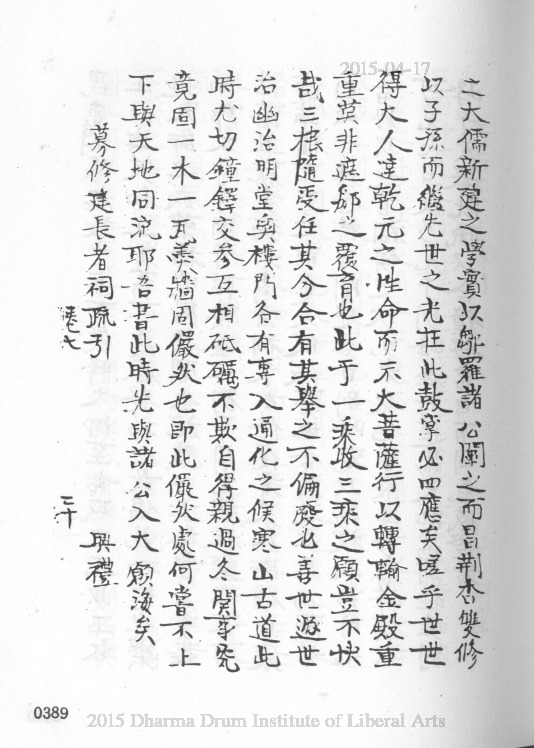 2015-04-17
二大儒新建之學實以鄒羅諸公闡之而昌荆杏雙修
以子孫而繼先世之光在此鼓掌必四應矣嗟乎世世
得大人達乾元之性命而示大菩薩行以轉輪金殿重
重莫非遮鄔之覆育也此于一乘收三乘之願豈不快
哉三根隨受任其分合有其舉之不偏廢也善世遊世
治幽治明堂奧樓門各有專入通化之候寒山古道此
時尤切鐘鐸交參互相砥礪不欺自得親過冬關事究
竟固一木一瓦羹牆固儼然也即此儼然處何嘗不上
下與天地同流耶吾書此時光與諸公入大願海矣
募修建長者祠疏引
卷七 二十 興禮
0389
2015 Dharma Drum Institute of Liberal Arts